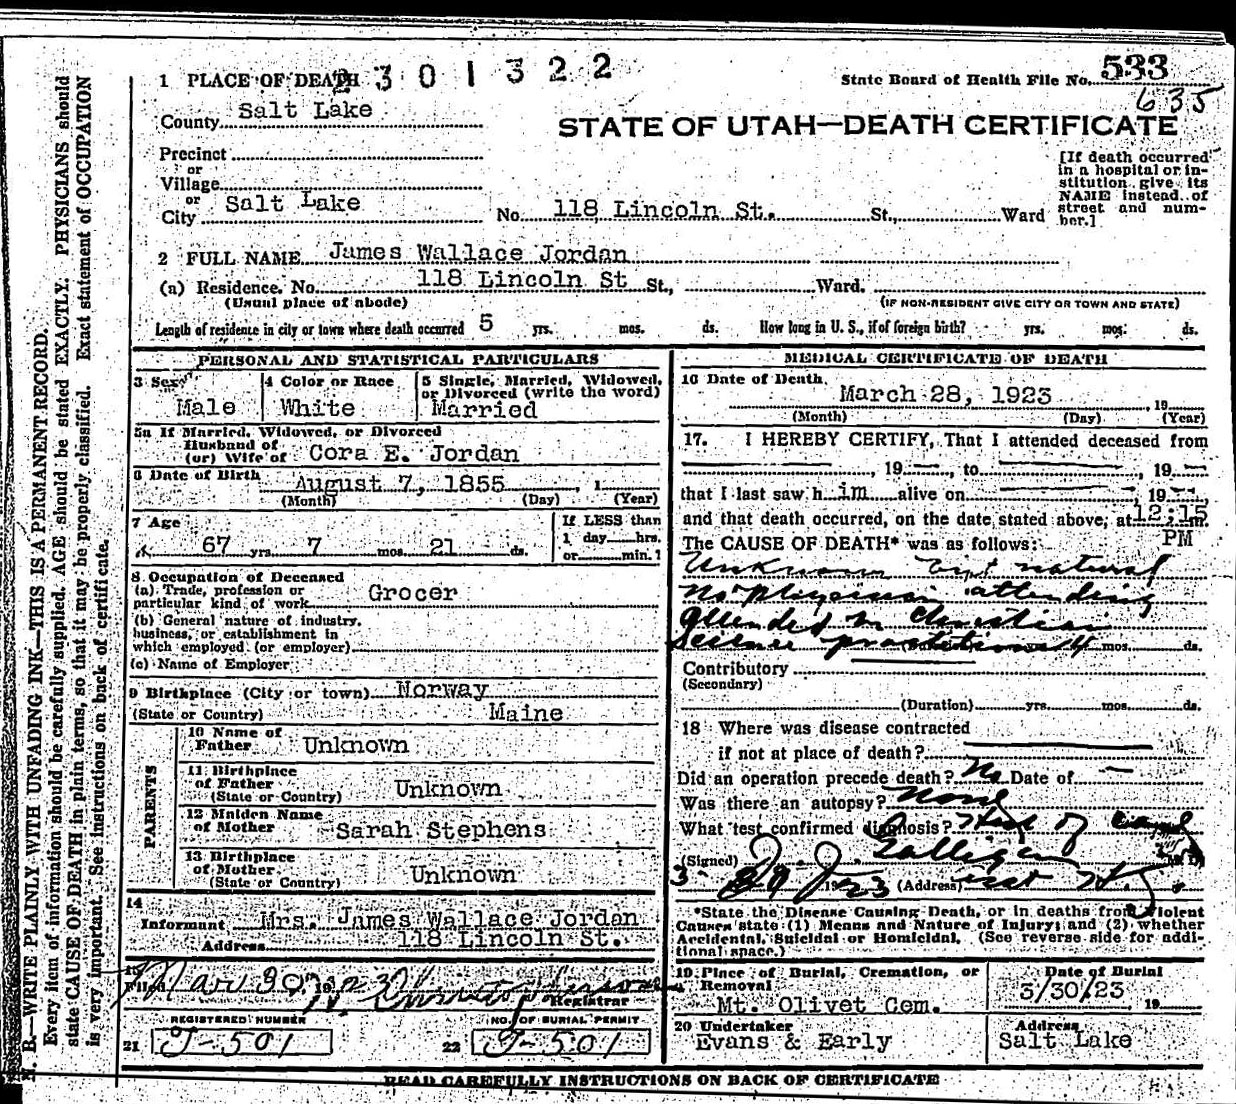 1 PLACE OF DEATH 2301322
State Board of Health File No. 533
635
County Salt Lake
STATE OF UTAH—DEATH CERTIFICATE
Precinct
or
Village
or
City Salt Lake No. 118 Lincoln St. St., Ward
[If death occurred in a hospital or in-
stitution give its
NAME instead of
street and num-
ber.]
2 FULL NAME James Wallace Jordan
(a) Residence. No. 118 Lincoln St St., Ward.
(Usual place of abode) (IF NON-RESIDENT GIVE CITY OR TOWN AND STATE)
Length of residence in city or town where death occurred 5 yrs. mos. ds. How long in U. S., if of foreign birth? yrs. mos. ds.
PERSONAL AND STATISTICAL PARTICULARS
3 Sex 4 Color or Race 5 Single, Married, Widowed,
or Divorced (write the word)
Male White Married
5a If Married, Widowed, or Divorced
Husband of
(or) Wife of Cora E. Jordan
6 Date of Birth August 7, 1855, 1
(Month) (Day) (Year)
7 Age If LESS than
67 yrs. 7 mos. 21 ds. 1 day hrs.
or min.?
8 Occupation of Deceased
(a) Trade, profession or
particular kind of work Grocer
(b) General nature of industry,
business, or establishment in
which employed (or employer)
(c) Name of Employer
9 Birthplace (City or town) Norway
(State or Country) Maine
PARENTS
10 Name of
Father Unknown
11 Birthplace
of Father
(State or Country) Unknown
12 Maiden Name
of Mother Sarah Stephens
13 Birthplace
of Mother
(State or Country) Unknown
14
Informant Mrs. James Wallace Jordan
Address 118 Lincoln St.
15
Filed Mar 30, 1923
Registrar
REGISTERED NUMBER NO. OF BURIAL PERMIT
21 J-501 22 J-501
MEDICAL CERTIFICATE OF DEATH
16 Date of Death
March 28, 1923, 19
(Month) (Day) (Year)
17. I HEREBY CERTIFY, That I attended deceased from
, 19 , to , 19
that I last saw him alive on , 19
and that death occurred, on the date stated above, at 12:15 m.
PM
The CAUSE OF DEATH* was as follows:
Unknown but natural
No physician attending
Attended by Christian
Science yrs. mos. ds.
Contributory
(Secondary)
(Duration) yrs. mos. ds.
18 Where was disease contracted
if not at place of death?
Did an operation precede death? No Date of —
Was there an autopsy? None
What test confirmed diagnosis? Hist of case
(Signed) Galligan M.D.
3- 29 1923 (Address)
*State the Disease Causing Death, or in deaths from Violent
Causes state (1) Means and Nature of Injury; and (2) whether
Accidental, Suicidal or Homicidal. (See reverse side for addi-
tional space.)
19 Place of Burial, Cremation, or
Removal
Mt. Olivet Cem.
Date of Burial
3/30/23 19
20 Undertaker
Evans & Early
Address
Salt Lake
READ CAREFULLY INSTRUCTIONS ON BACK OF CERTIFICATE
N. B.—WRITE PLAINLY WITH UNFADING INK—THIS IS A PERMANENT RECORD.
Every item of information should be carefully supplied. AGE should be stated EXACTLY. PHYSICIANS should
state CAUSE OF DEATH in plain terms, so that it may be properly classified. Exact statement of OCCUPATION
is very important. See instructions on back of certificate.